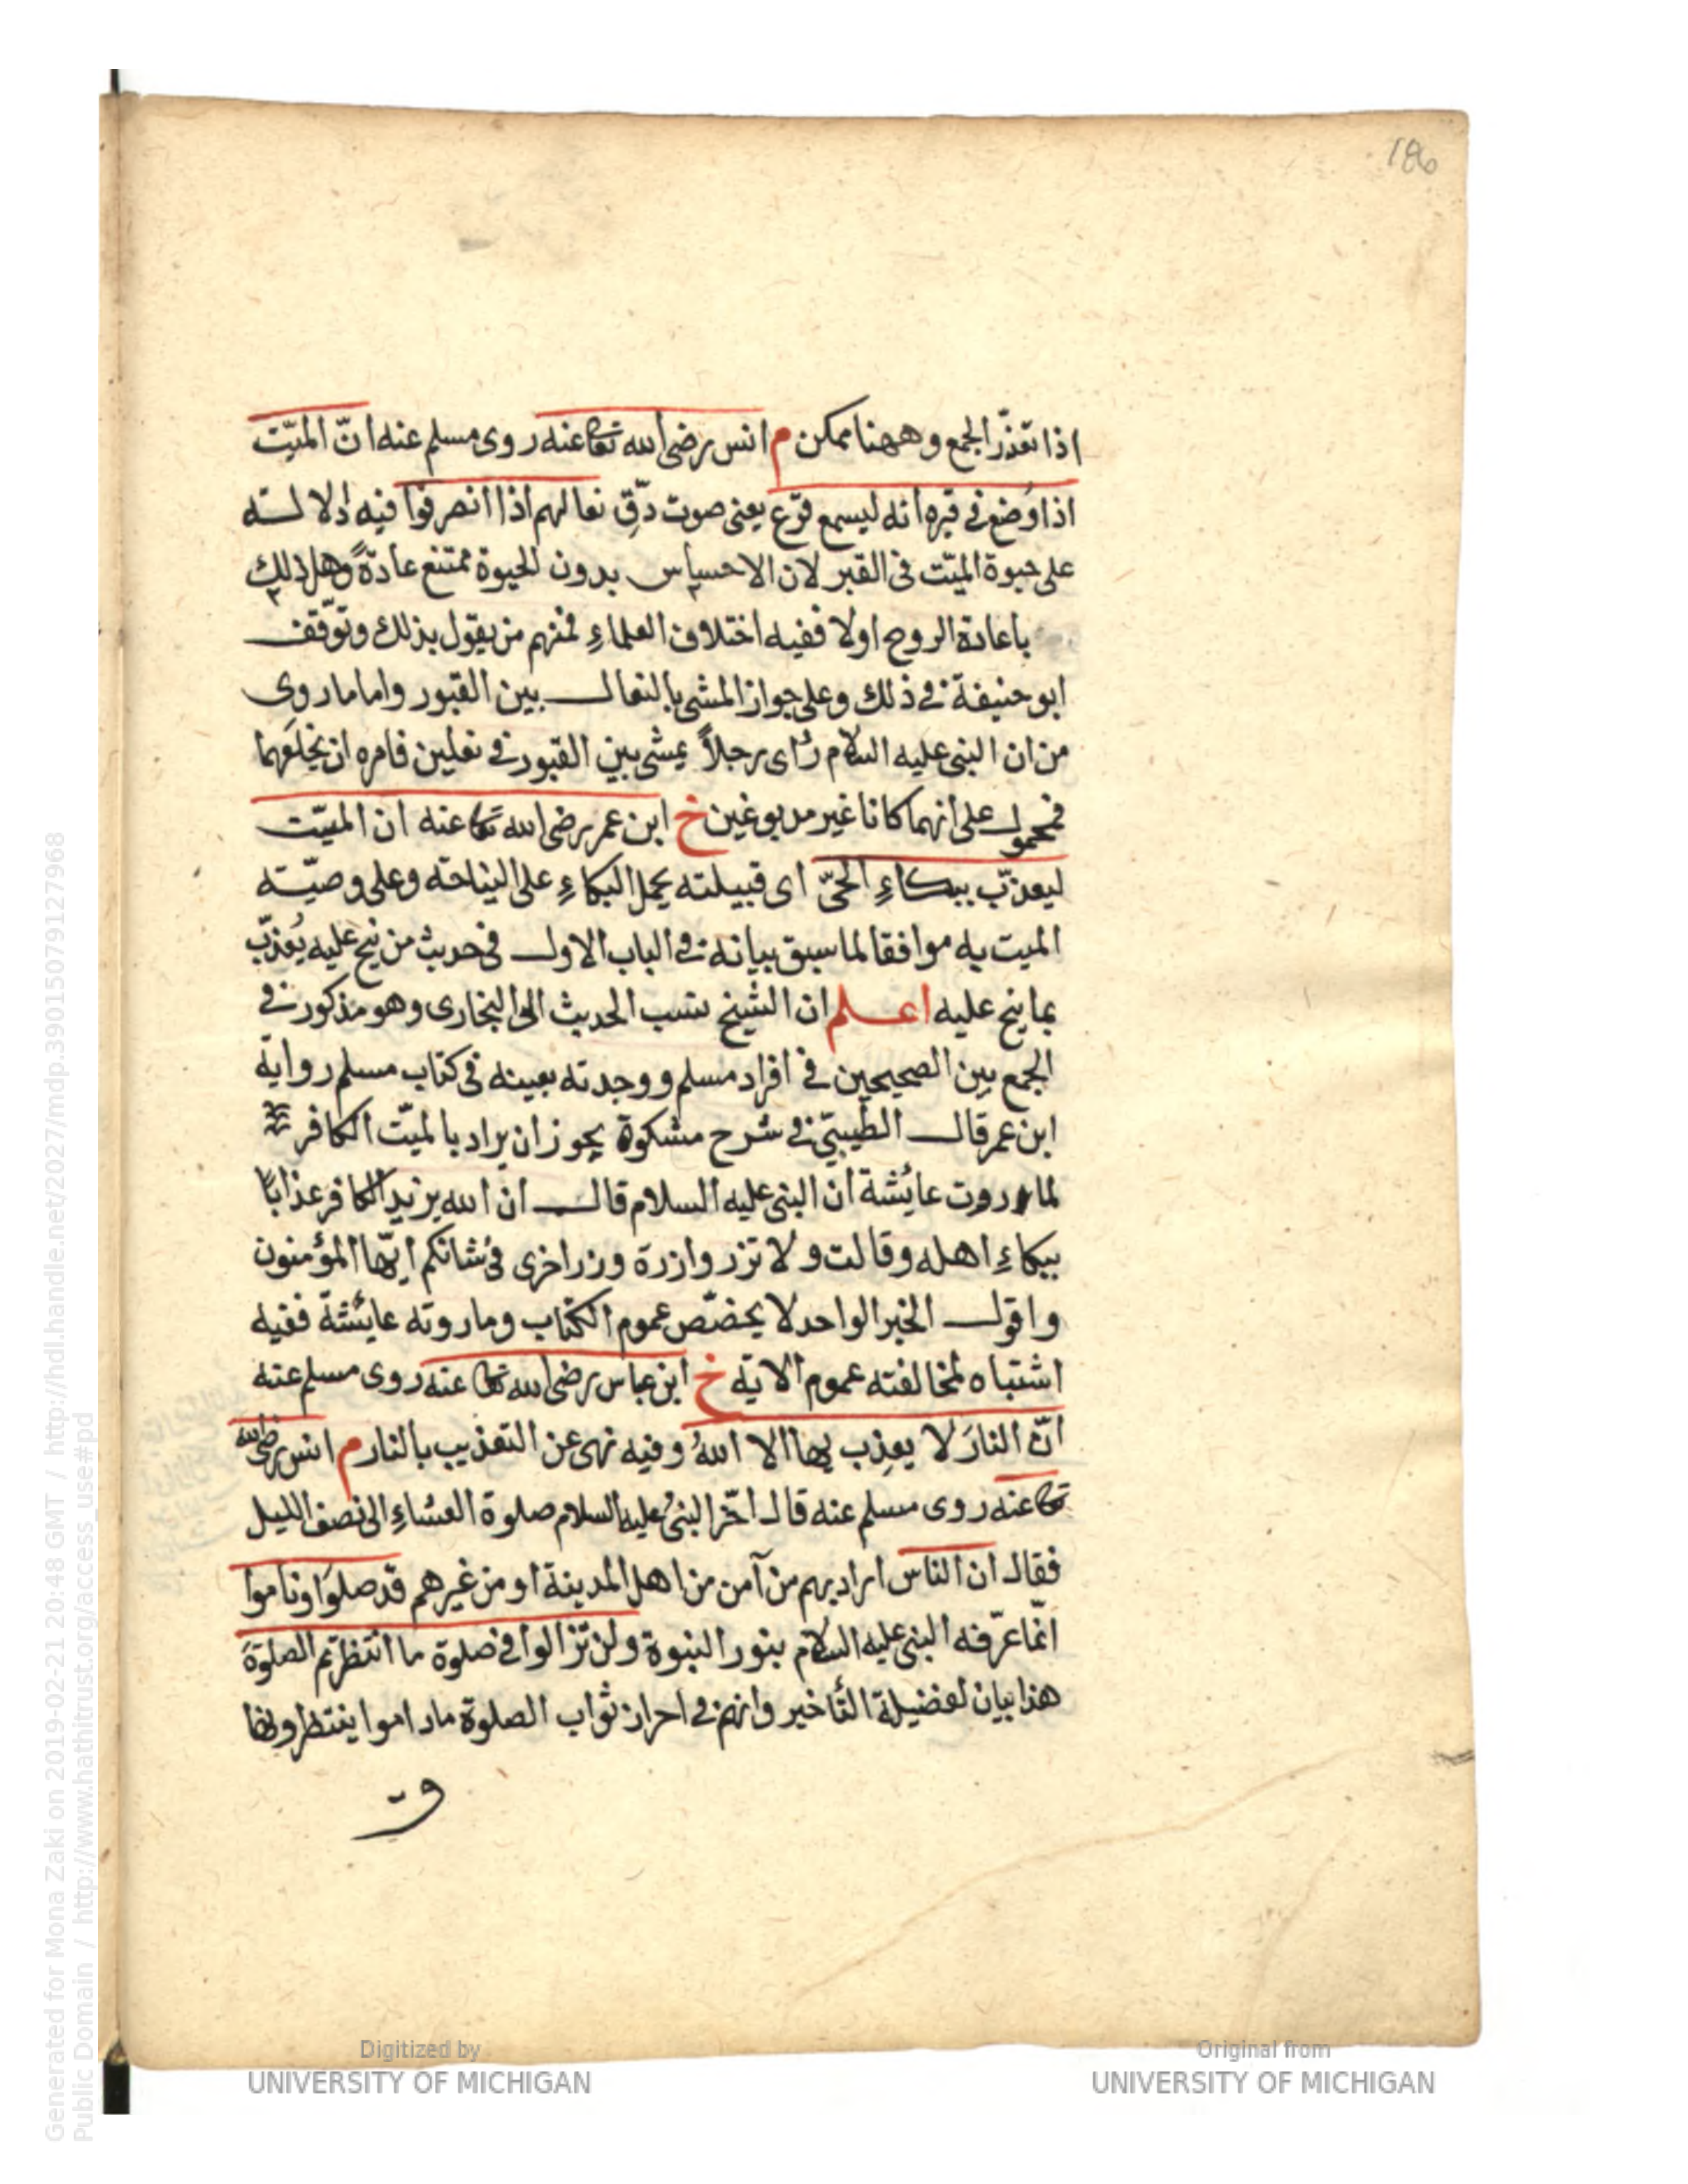 180
اذا تعذّر الجمع وههنا ممكن م انس رضى الله تعا عنه روى مسلم عنه انّ الميّت
اذا وُضع فى قبره انه ليسمع قرْع يعنى صوت دقّ نعالهم اذا انصرفوا فيه دلالته
على حيوة الميّت فى القبر لان الاحساس بدون الحيوة ممتنع عادةً وهل ذلك
باعادة الروح اولا ففيه اختلاف العلماءِ فمنهم من يقول بذلك وتوقّف
ابو حنيفة فى ذلك وعلى جواز المشى بالنعال بين القبور واما ما روى
من ان النبى عليه السلام رأى رجلاً يمشى بين القبور فى نعلين فامره ان يخلعهما
فمحمول على انهما كانا غير مدبوغين خ ابن عمر رضى الله تعا عنه ان الميّت
ليعذّب ببكاءِ الحىّ اى قبيلته يحمل البكاءِ على النياحته وعلى وصيّته
الميت به موافقا لما سبق بيانه فى الباب الاول فى حديث من نيح عليه يُعذّب
بما نيح عليه اعلم ان الشيخ نسب الحديث الى البخارى وهو مذكور فى
الجمع بين الصحيحين فى افراد مسلم ووجدته بعينه فى كتاب مسلم رواية
ابن عمر قال الطيبّى فى شرح مشكوة يجوز ان يراد بالميّت الكافر
لما روت عائشة ان النبى عليه السلام قال ان الله يزيد الكافر عذابًا
ببكاءِ اهله وقالت ولا تزر وازرة وزر اخرى فى شانكم ايّها المؤمنون
واقول الخبر الواحد لا يخصّص عموم الكتاب وما روته عايشة ففيه
اشتباه لمخالفته عموم الاية خ ابن عباس رضى الله تعا عنه روى مسلم عنه
انّ النارَ لا يعذِب بها الا اللهُ وفيه نهى عن التعذيب بالنار م انس رضى الله
تعا عنه روى مسلم عنه قال اخّر النبىُ عليه السلام صلوة العشاءِ الى نصف الليل
فقال ان الناس اراد بهم من آمن من اهل المدينة او من غيرهم قد صلوَا وناموا
انّما عرّفه النبى عليه السلام بنور النبوة ولن تزالوا فى صلوة ما انتظرتم الصلوةَ
هذا بيان لفضيلة التأخير وانهم فى احراز ثواب الصلوة ماداموا ينتظرونها
Digitized by
UNIVERSITY OF MICHIGAN
Original from
UNIVERSITY OF MICHIGAN
Generated for Mona Zaki on 2019-02-21 20:48 GMT / http://hdl.handle.net/2027/mdp.39015079127968
Public Domain / http://www.hathitrust.org/access_use#pd